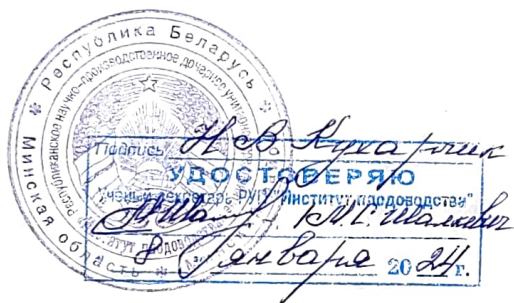 Республика Беларусь
Минская область
Республиканское научно-производственное дочернее
Подпись Н. В. Кухарчик
УДОСТОВЕРЯЮ
Ученый секретарь РУП "Институт плодоводства"
М.С. Шалкевич
8 января 2024 г.